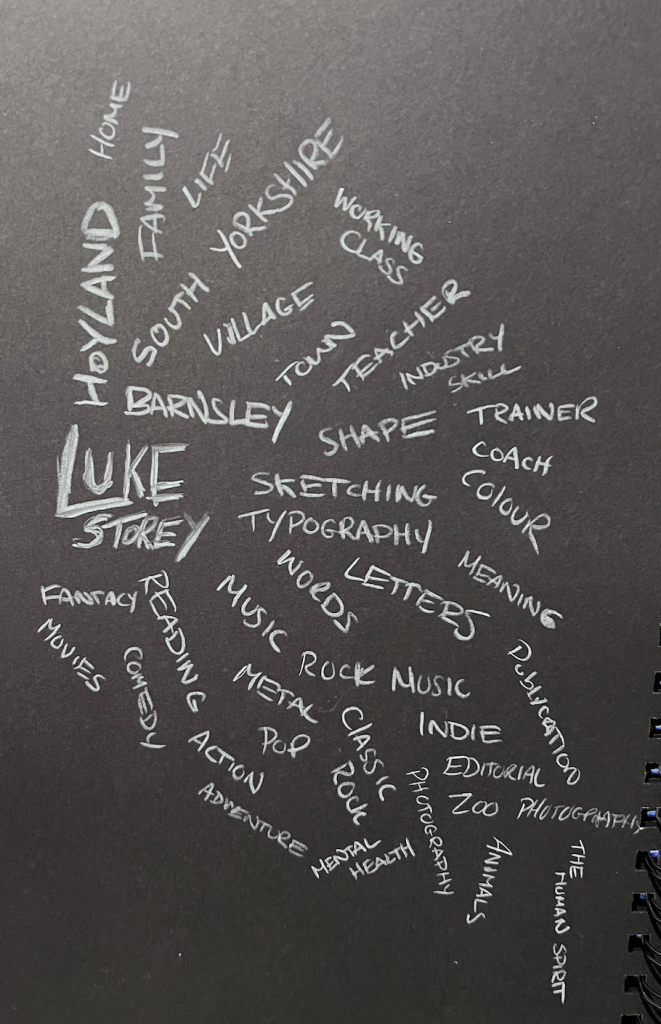 HOME
FAMILY
LIFE
HOYLAND
SOUTH YORKSHIRE
WORKING
CLASS
VILLAGE
TOWN
TEACHER
INDUSTRY
SKILL
BARNSLEY
SHAPE
TRAINER
COACH
COLOUR
LUKE
STOREY
SKETCHING
TYPOGRAPHY
WORDS
LETTERS
MEANING
FANTACY
READING
MUSIC
MOVIES
COMEDY
METAL
ROCK MUSIC
PUBLICATION
POP
CLASSIC
ROCK
INDIE
ACTION
EDITORIAL
ADVENTURE
PHOTOGRAPHY
ZOO PHOTOGRAPHY
MENTAL
HEALTH
ANIMALS
THE HUMAN SPIRIT